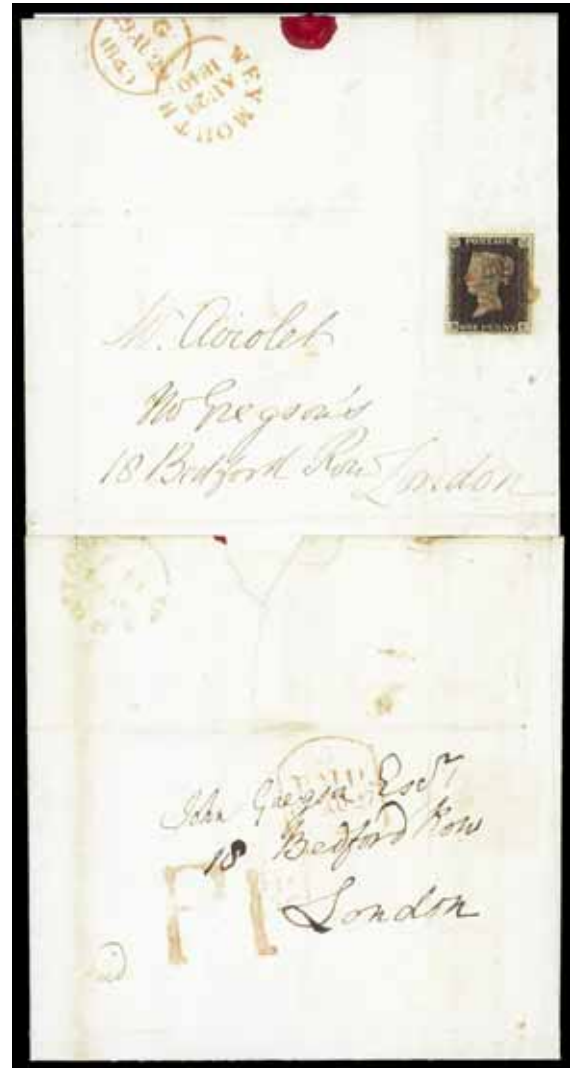 G
AU 29
1840
WEYMOUTH
AU 28
1840
POSTAGE
ONE PENNY
Mr. Aviolet
Mr Gregson's
18 Bedford Row London
PAID
John Gregson Esqr
18 Bedford Row
London
P1
Paid